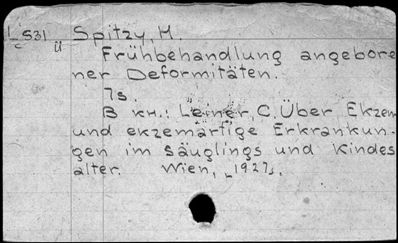 L S31 ü Spitzy, H.
c Frühbehandlung angebore
ner Deformitäten.
7s.
В кн.: Leiner, C. Über Ekzem
und ekzemartige Erkrankun-
gen im Säuglings und Kindes
alter. Wien, [1927].